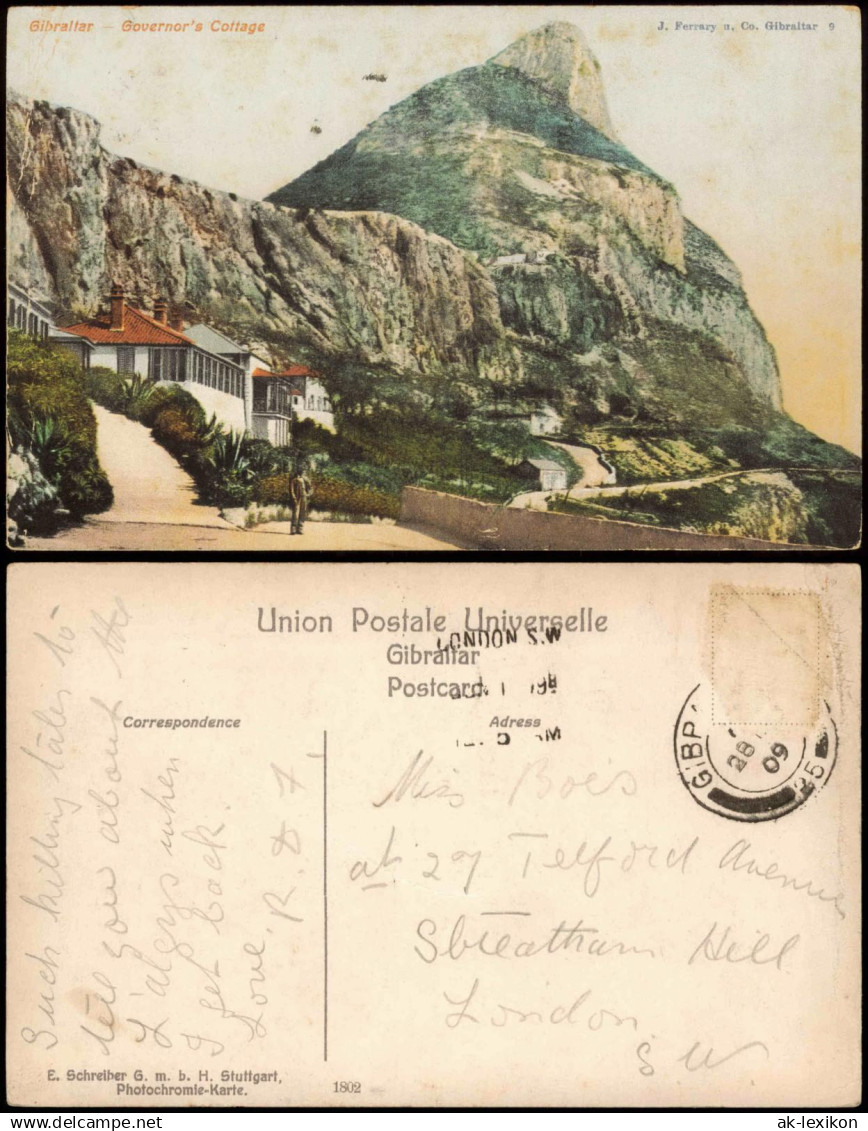 Gibraltar – Governor's Cottage
J. Ferrary u. Co. Gibraltar 9
Union Postale Universelle
Gibraltar
Postcard
LONDON S.W
Correspondence
Adress
28
09
25
Such killing tales to
tell you about the
when
I get back.
Love, R. & F.
Miss Bois
at 27 Telford Avenue
Streatham Hill
London
S W
E. Schreiber G. m. b. H. Stuttgart,
Photochromie-Karte.
1802
delcampe.net
ak-lexikon